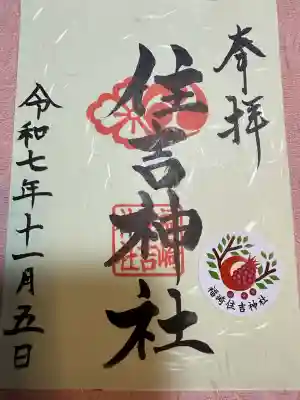 奉拝
住吉神社
令和七年十一月五日
福崎住吉神社